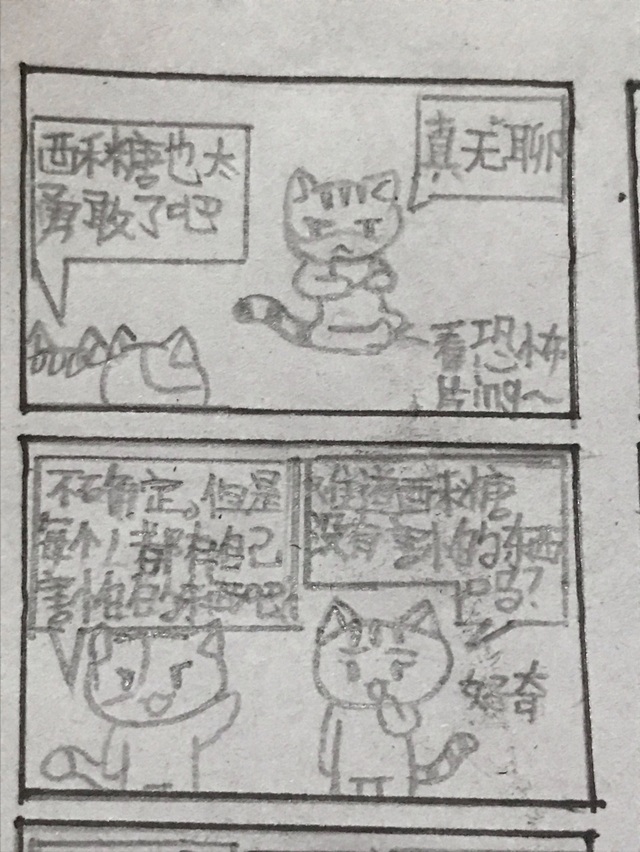 酥糖也太
勇敢了吧
真无聊
看恐怖
片ing~
不确定。但是
每个人都有自己
害怕的东西吧
难道酥糖
没有害怕的东西
吗?
好奇